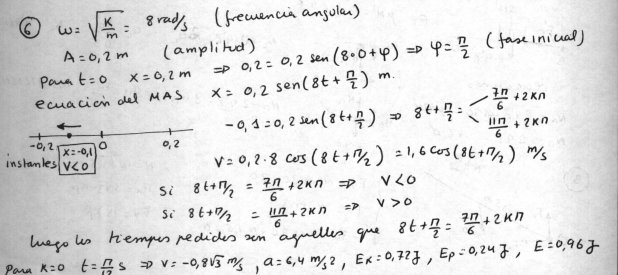 ⑥ ω = √(K/m) = 8 rad/s (frecuencia angular)
A = 0,2 m (amplitud)
Para t=0 x = 0,2 m ⇒ 0,2 = 0,2 sen (8·0+φ) ⇒ φ = π/2 (fase inicial)
ecuación del MAS x = 0,2 sen(8t + π/2) m.
-0,1 = 0,2 sen(8t + π/2) ⇒ 8t + π/2 = 7π/6 + 2Kπ
11π/6 + 2Kπ
-0,2 0 0,2
instantes x=-0,1
V<0
V = 0,2·8 cos (8t + π/2) = 1,6 cos(8t + π/2) m/s
Si 8t + π/2 = 7π/6 + 2Kπ ⇒ V<0
Si 8t + π/2 = 11π/6 + 2Kπ ⇒ V>0
luego los tiempos pedidos son aquellos que 8t + π/2 = 7π/6 + 2Kπ
Para K=0 t = π/12 s ⇒ V = -0,8√3 m/s, a = 6,4 m/s², Ek = 0,72 J, Ep = 0,24 J, E = 0,96 J